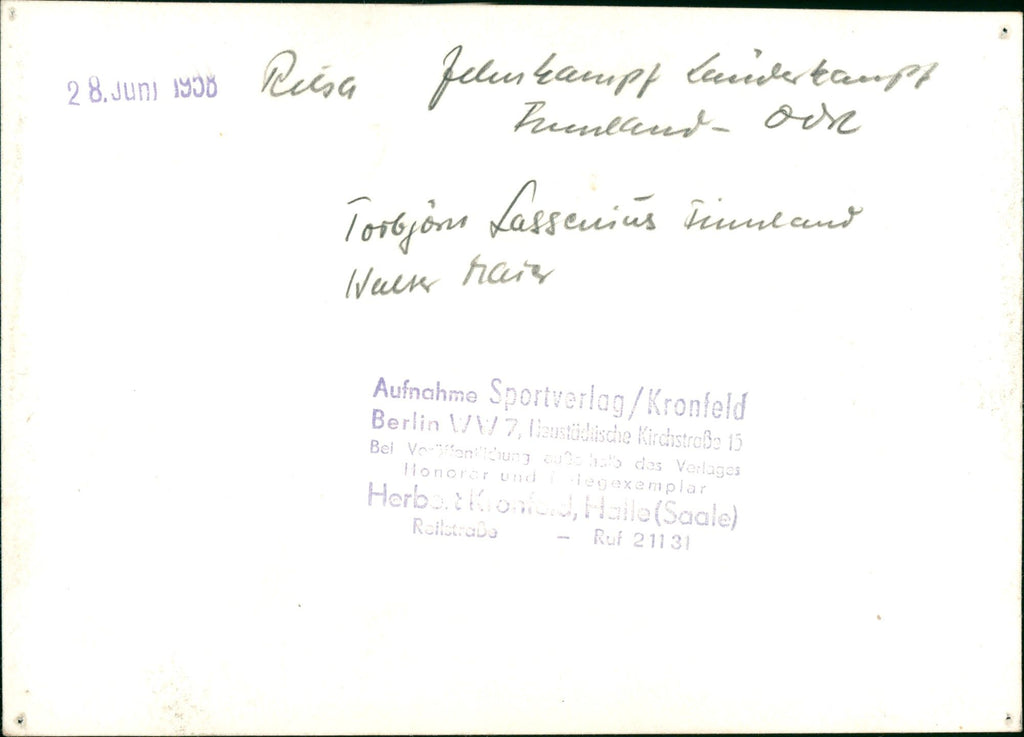 28. Juni 1958 Riesa Zehnkampf Länderkampf
Finnland - DDR
Torbjörn Lassenius Finnland
Walter Maier
Aufnahme Sportverlag/Kronfeld
Berlin W 7, Neustädtische Kirchstraße 15
Bei Veröffentlichung außerhalb des Verlages
Honorar und Belegexemplar
Herbert Kronfeld, Halle (Saale)
Reilstraße – Ruf 21131